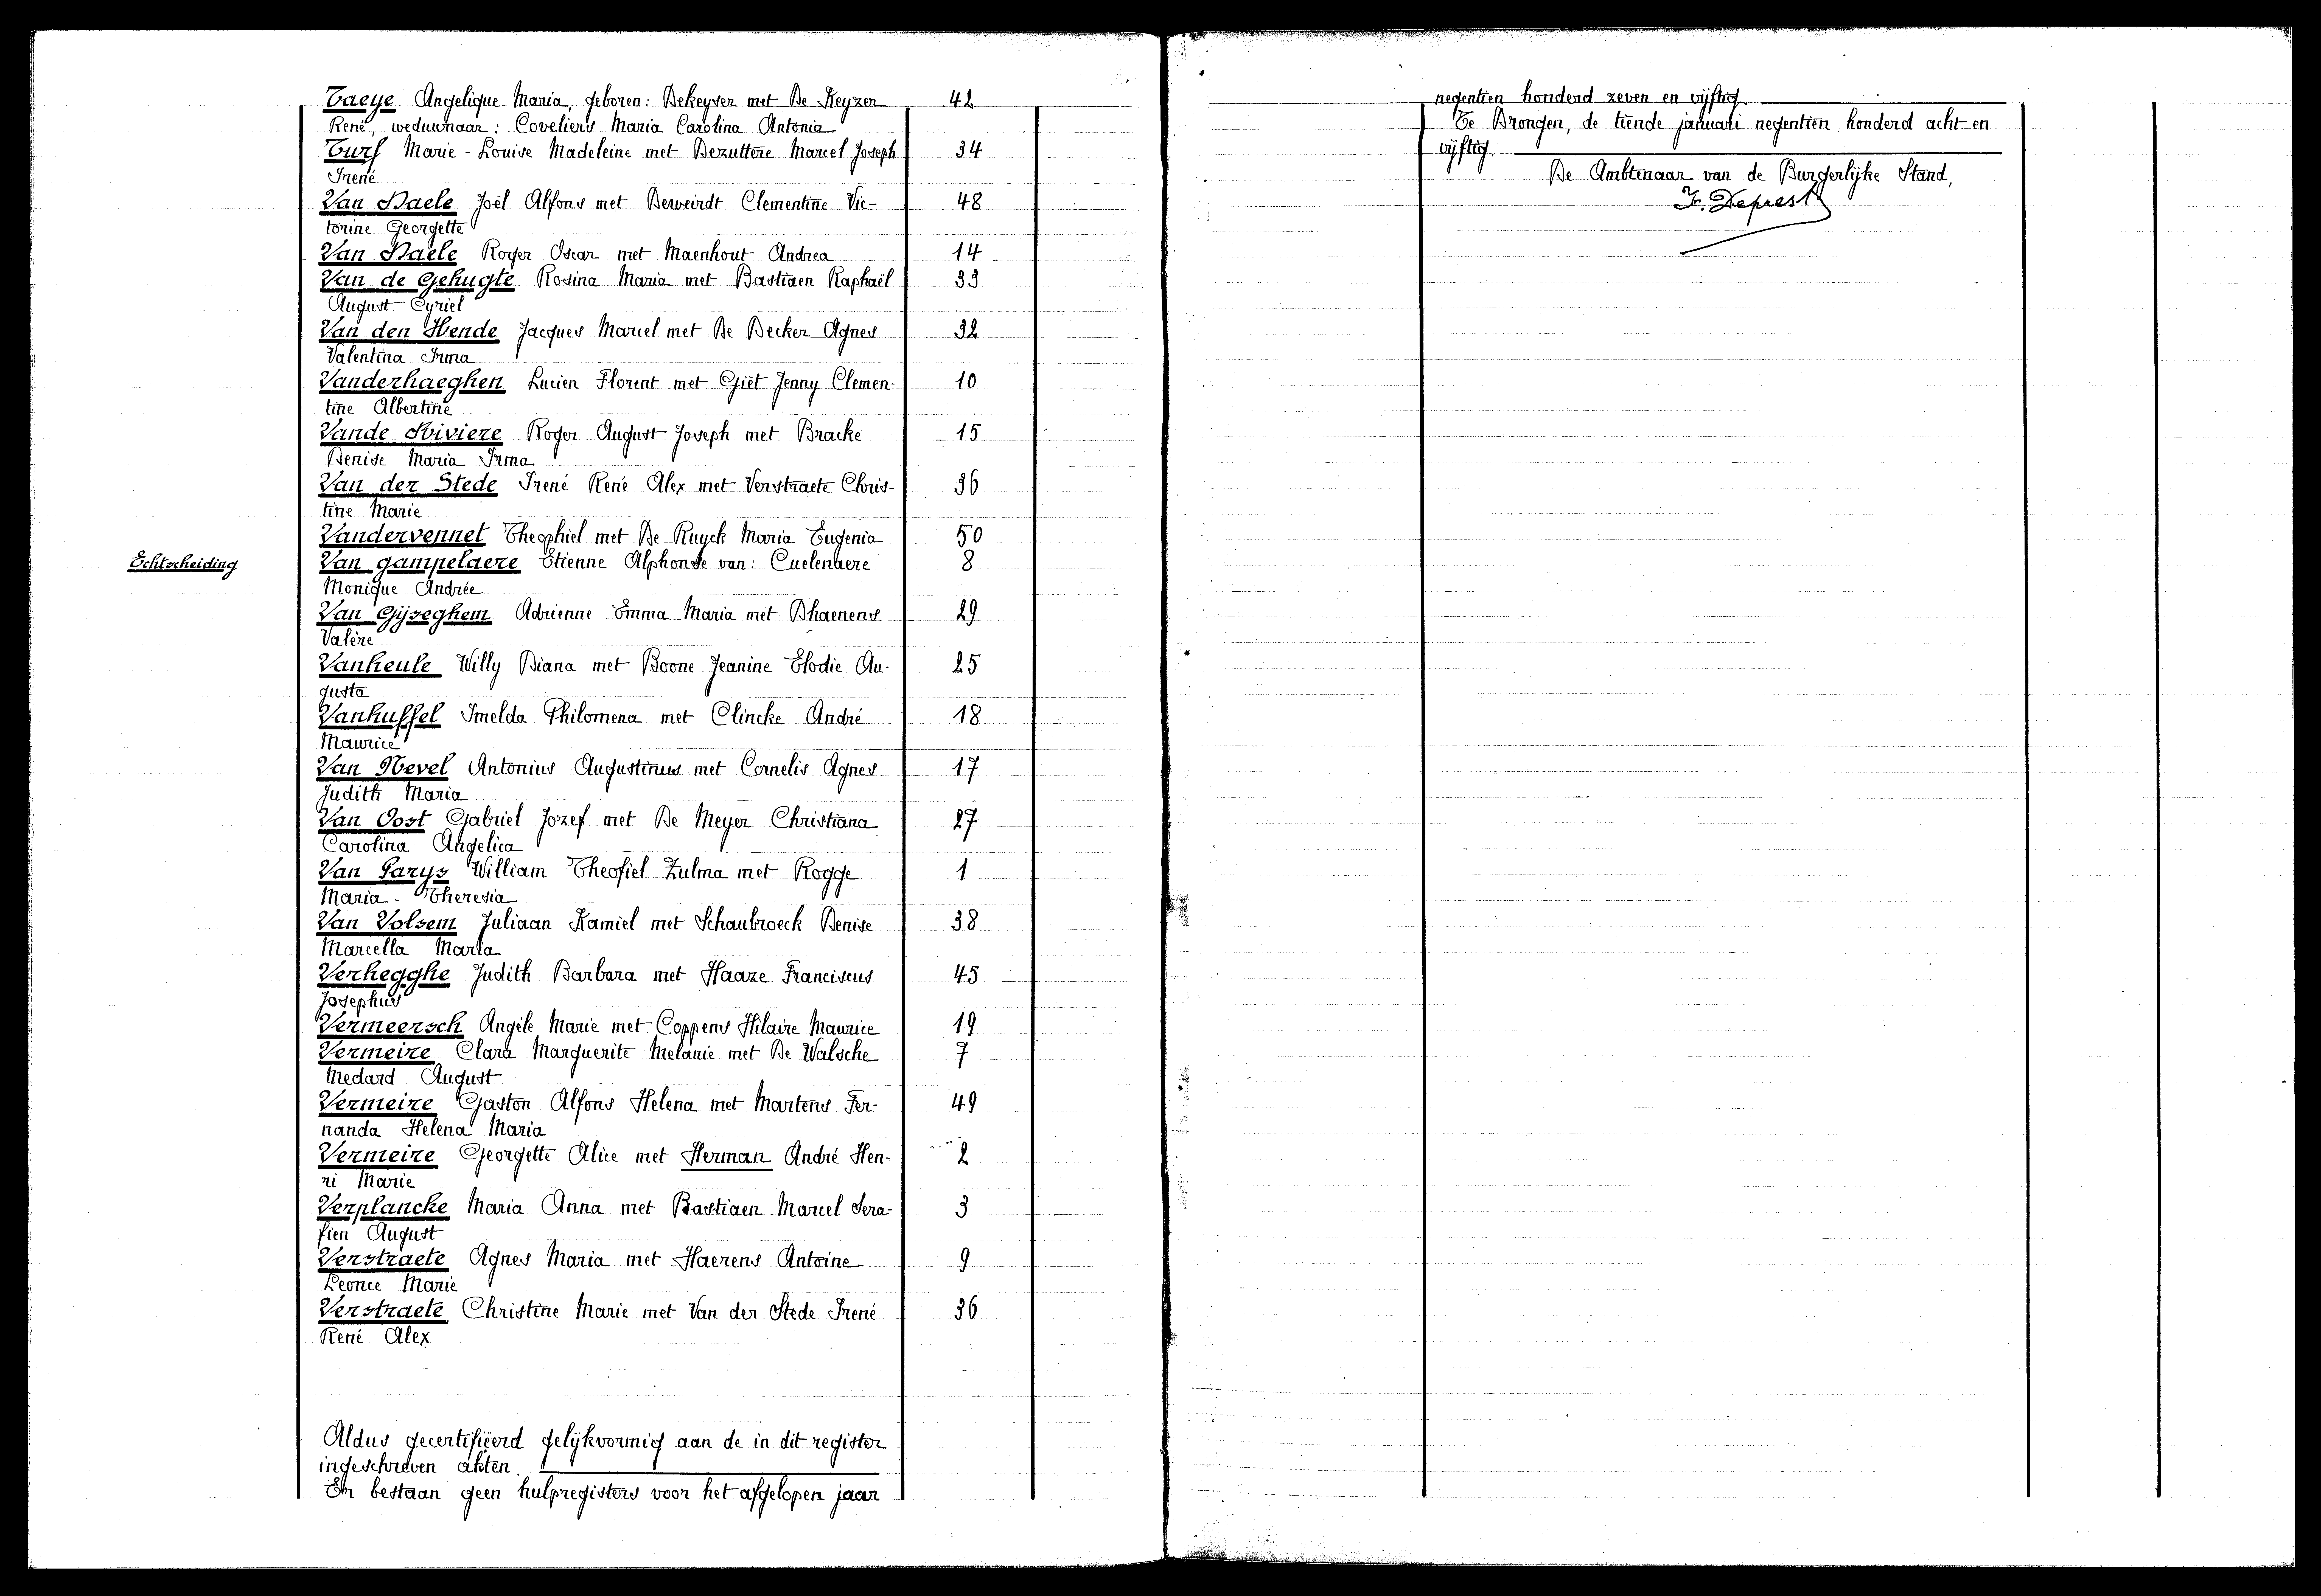 Taeye Angelique Maria, geboren: Dekeyser met De Keyzer 42
René, weduwnaar: Coveliers Maria Carolina Antonia
Turf Marie-Louise Madeleine met Dezuttere Marcel Joseph 34
Irené
Van Daele Joël Alfons met Derweirdt Clementine Vic- 48
torine Georgette
Van Daele Roger Oscar met Maenhout Andrea 14
Van de Gehugte Rosina Maria met Bastiaen Raphaël 33
August Cyriel
Van den Hende Jacques Marcel met De Decker Agnes 32
Valentina Irma
Vanderhaeghen Lucien Florent met Giët Jenny Clemen- 10
tine Albertine
Vande Riviere Roger August Joseph met Bracke 15
Denise Maria Irma
Van der Stede Irené René Alex met Verstraete Chris- 36
tine Marie
Vandervennet Theophiel met De Ruyck Maria Eugenia 50
Echtscheiding Van gampelaere Etienne Alphonse van: Cuelenaere 8
Monique Andrée
Van Gijseghem Adrienne Emma Maria met Dhaenens 29
Valère
Vanheule Willy Diana met Boone Jeanine Elodie Au- 25
gusta
Vanhuffel Imelda Philomena met Clincke André 18
Maurice
Van Nevel Antonius Augustinus met Cornelis Agnes 17
Judith Maria
Van Oost Gabriel Jozef met De Meyer Christiana 27
Carolina Angelica
Van Parys William Theofiel Zulma met Rogge 1
Maria-Theresia
Van Volsem Juliaan Kamiel met Schaubroeck Denise 38
Marcella Maria
Verhegghe Judith Barbara met Haaze Franciscus 45
Josephus
Vermeersch Angèle Marie met Coppens Hilaire Maurice 19
Vermeire Clara Marguerite Melanie met De Walsche 7
Medard August
Vermeire Gaston Alfons Helena met Martens Fer- 49
nanda Helena Maria
Vermeire Georgette Alice met Herman André Hen- 2
ri Marie
Verplancke Maria Anna met Bastiaen Marcel Sera- 3
fien August
Verstraete Agnes Maria met Haerens Antoine 9
Leonce Marie
Verstraete Christine Marie met Van der Stede Irené 36
René Alex
Aldus gecertifiëerd gelijkvormig aan de in dit register
ingeschreven akten.
Er bestaan geen hulpregisters voor het afgelopen jaar
negentien honderd zeven en vijftig.
Te Drongen, de tiende januari negentien honderd acht en
vijftig.
De Ambtenaar van de Burgerlijke Stand,
Fr. Deprest